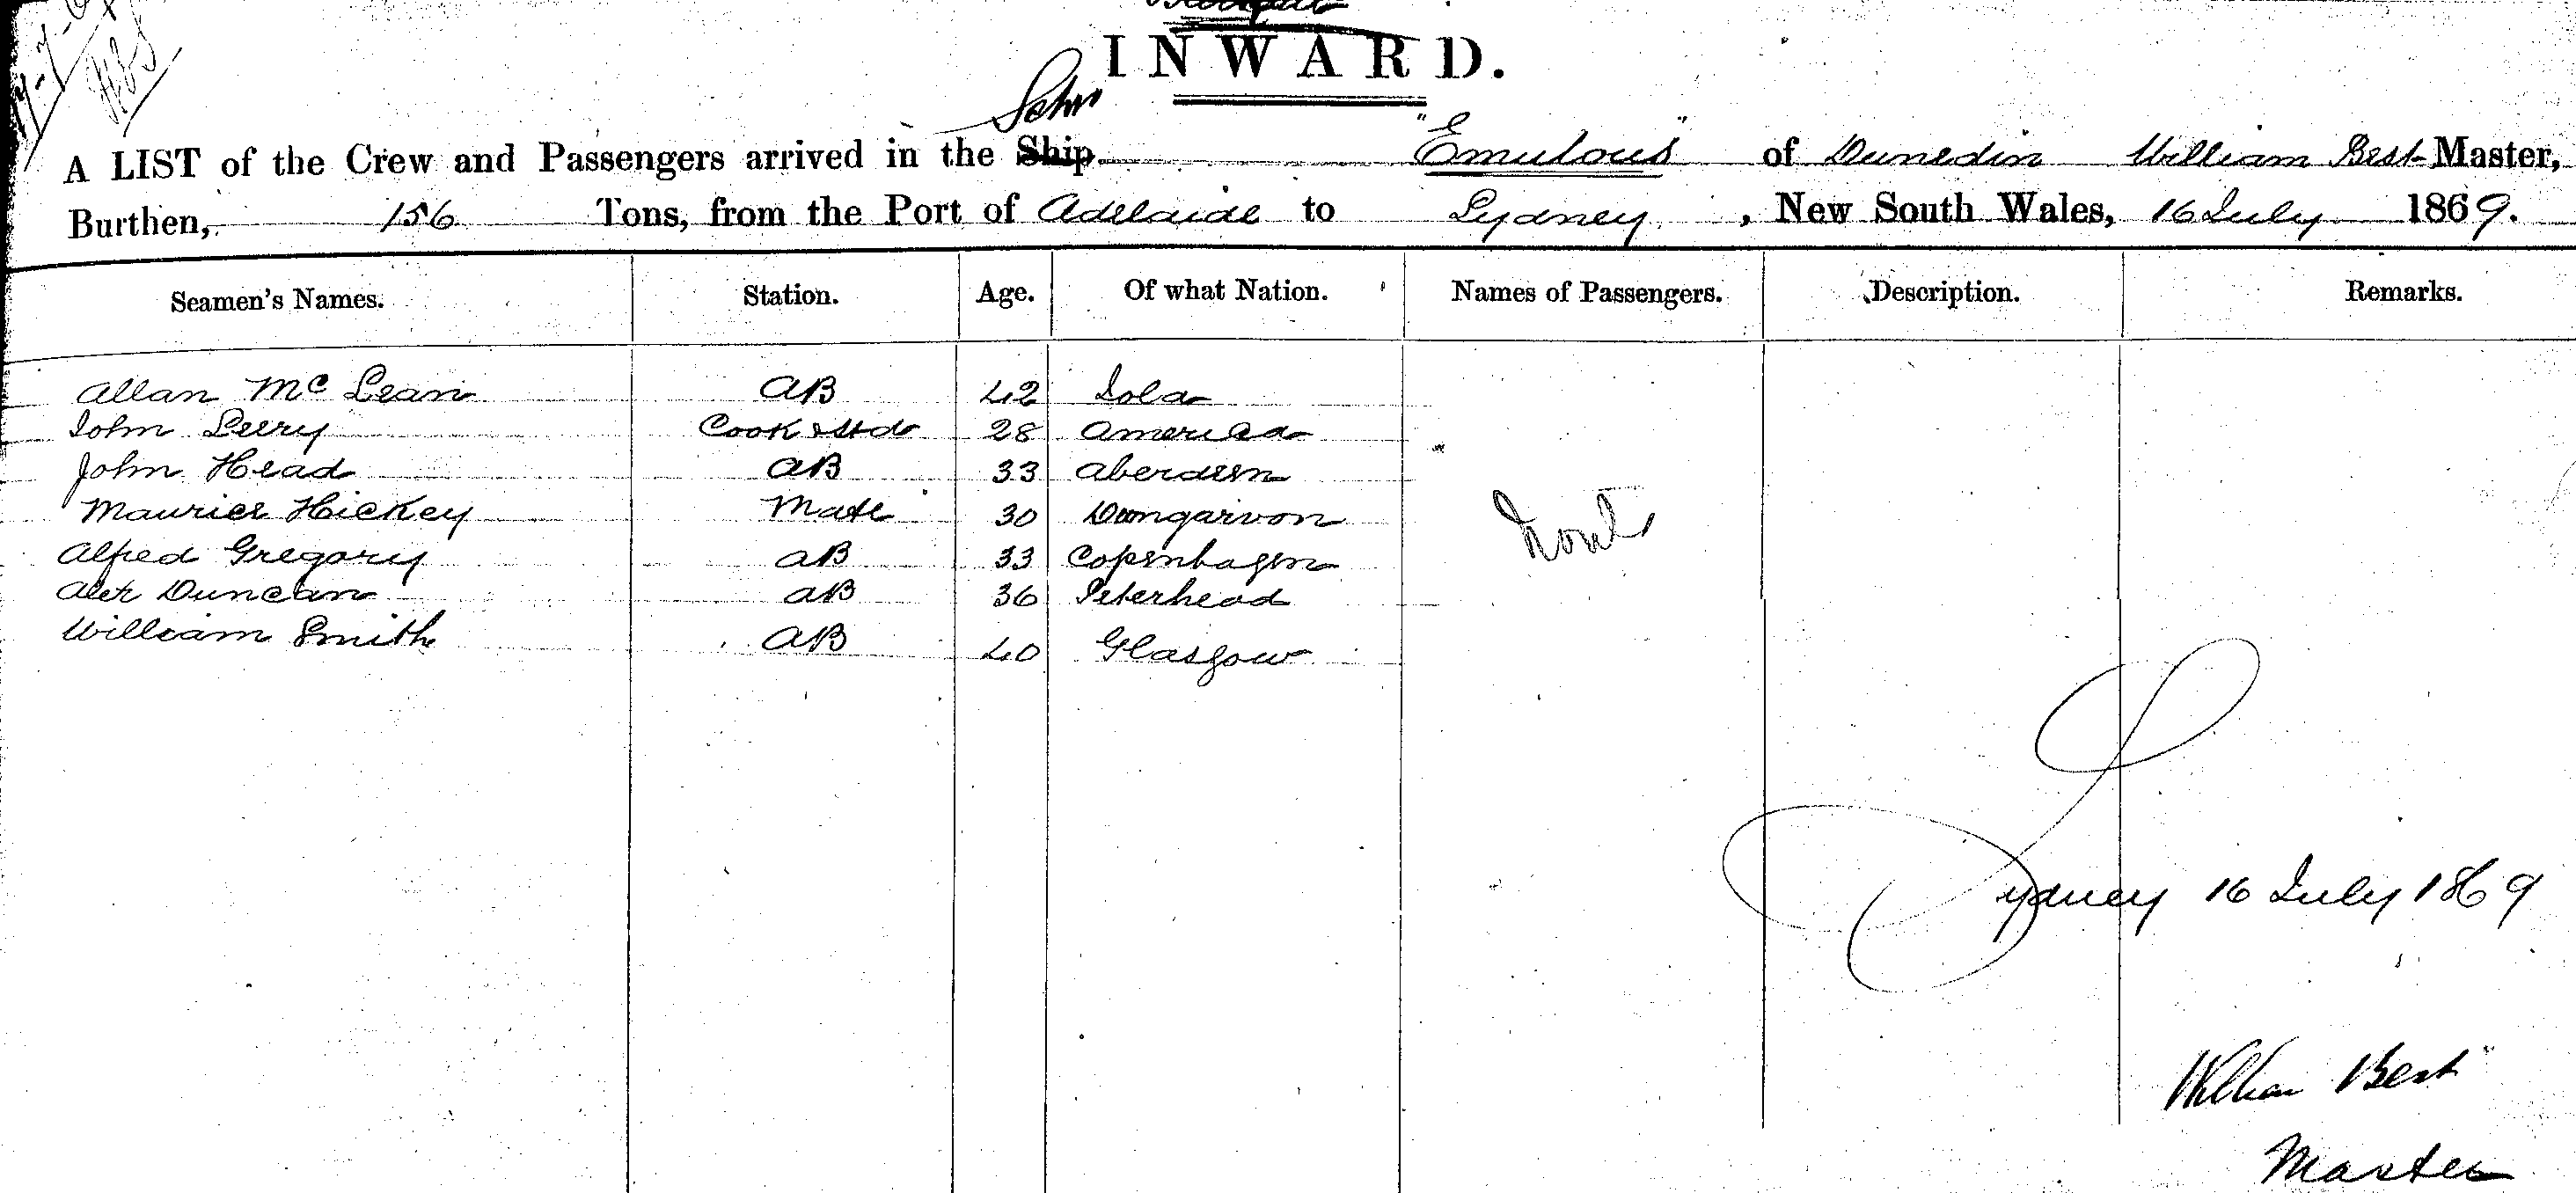 INWARD.
Schr
A LIST of the Crew and Passengers arrived in the Ship "Emulous" of Dunedin William Best Master,
Burthen, 156 Tons, from the Port of Adelaide to Sydney, New South Wales, 16 July 1869.
Seamen's Names. Station. Age. Of what Nation. Names of Passengers. Description. Remarks.
Allan McLean AB 42
John Perry Cook & Std 28 America
John Head AB 33 Aberdeen
Maurice Hickey Mate 30 Dungarvon
None
Alfred Gregory AB 33 Copenhagen
Alex Duncan AB 36 Peterhead
William Smith AB 40 Glasgow
Sydney 16 July 1869
William Best
Master